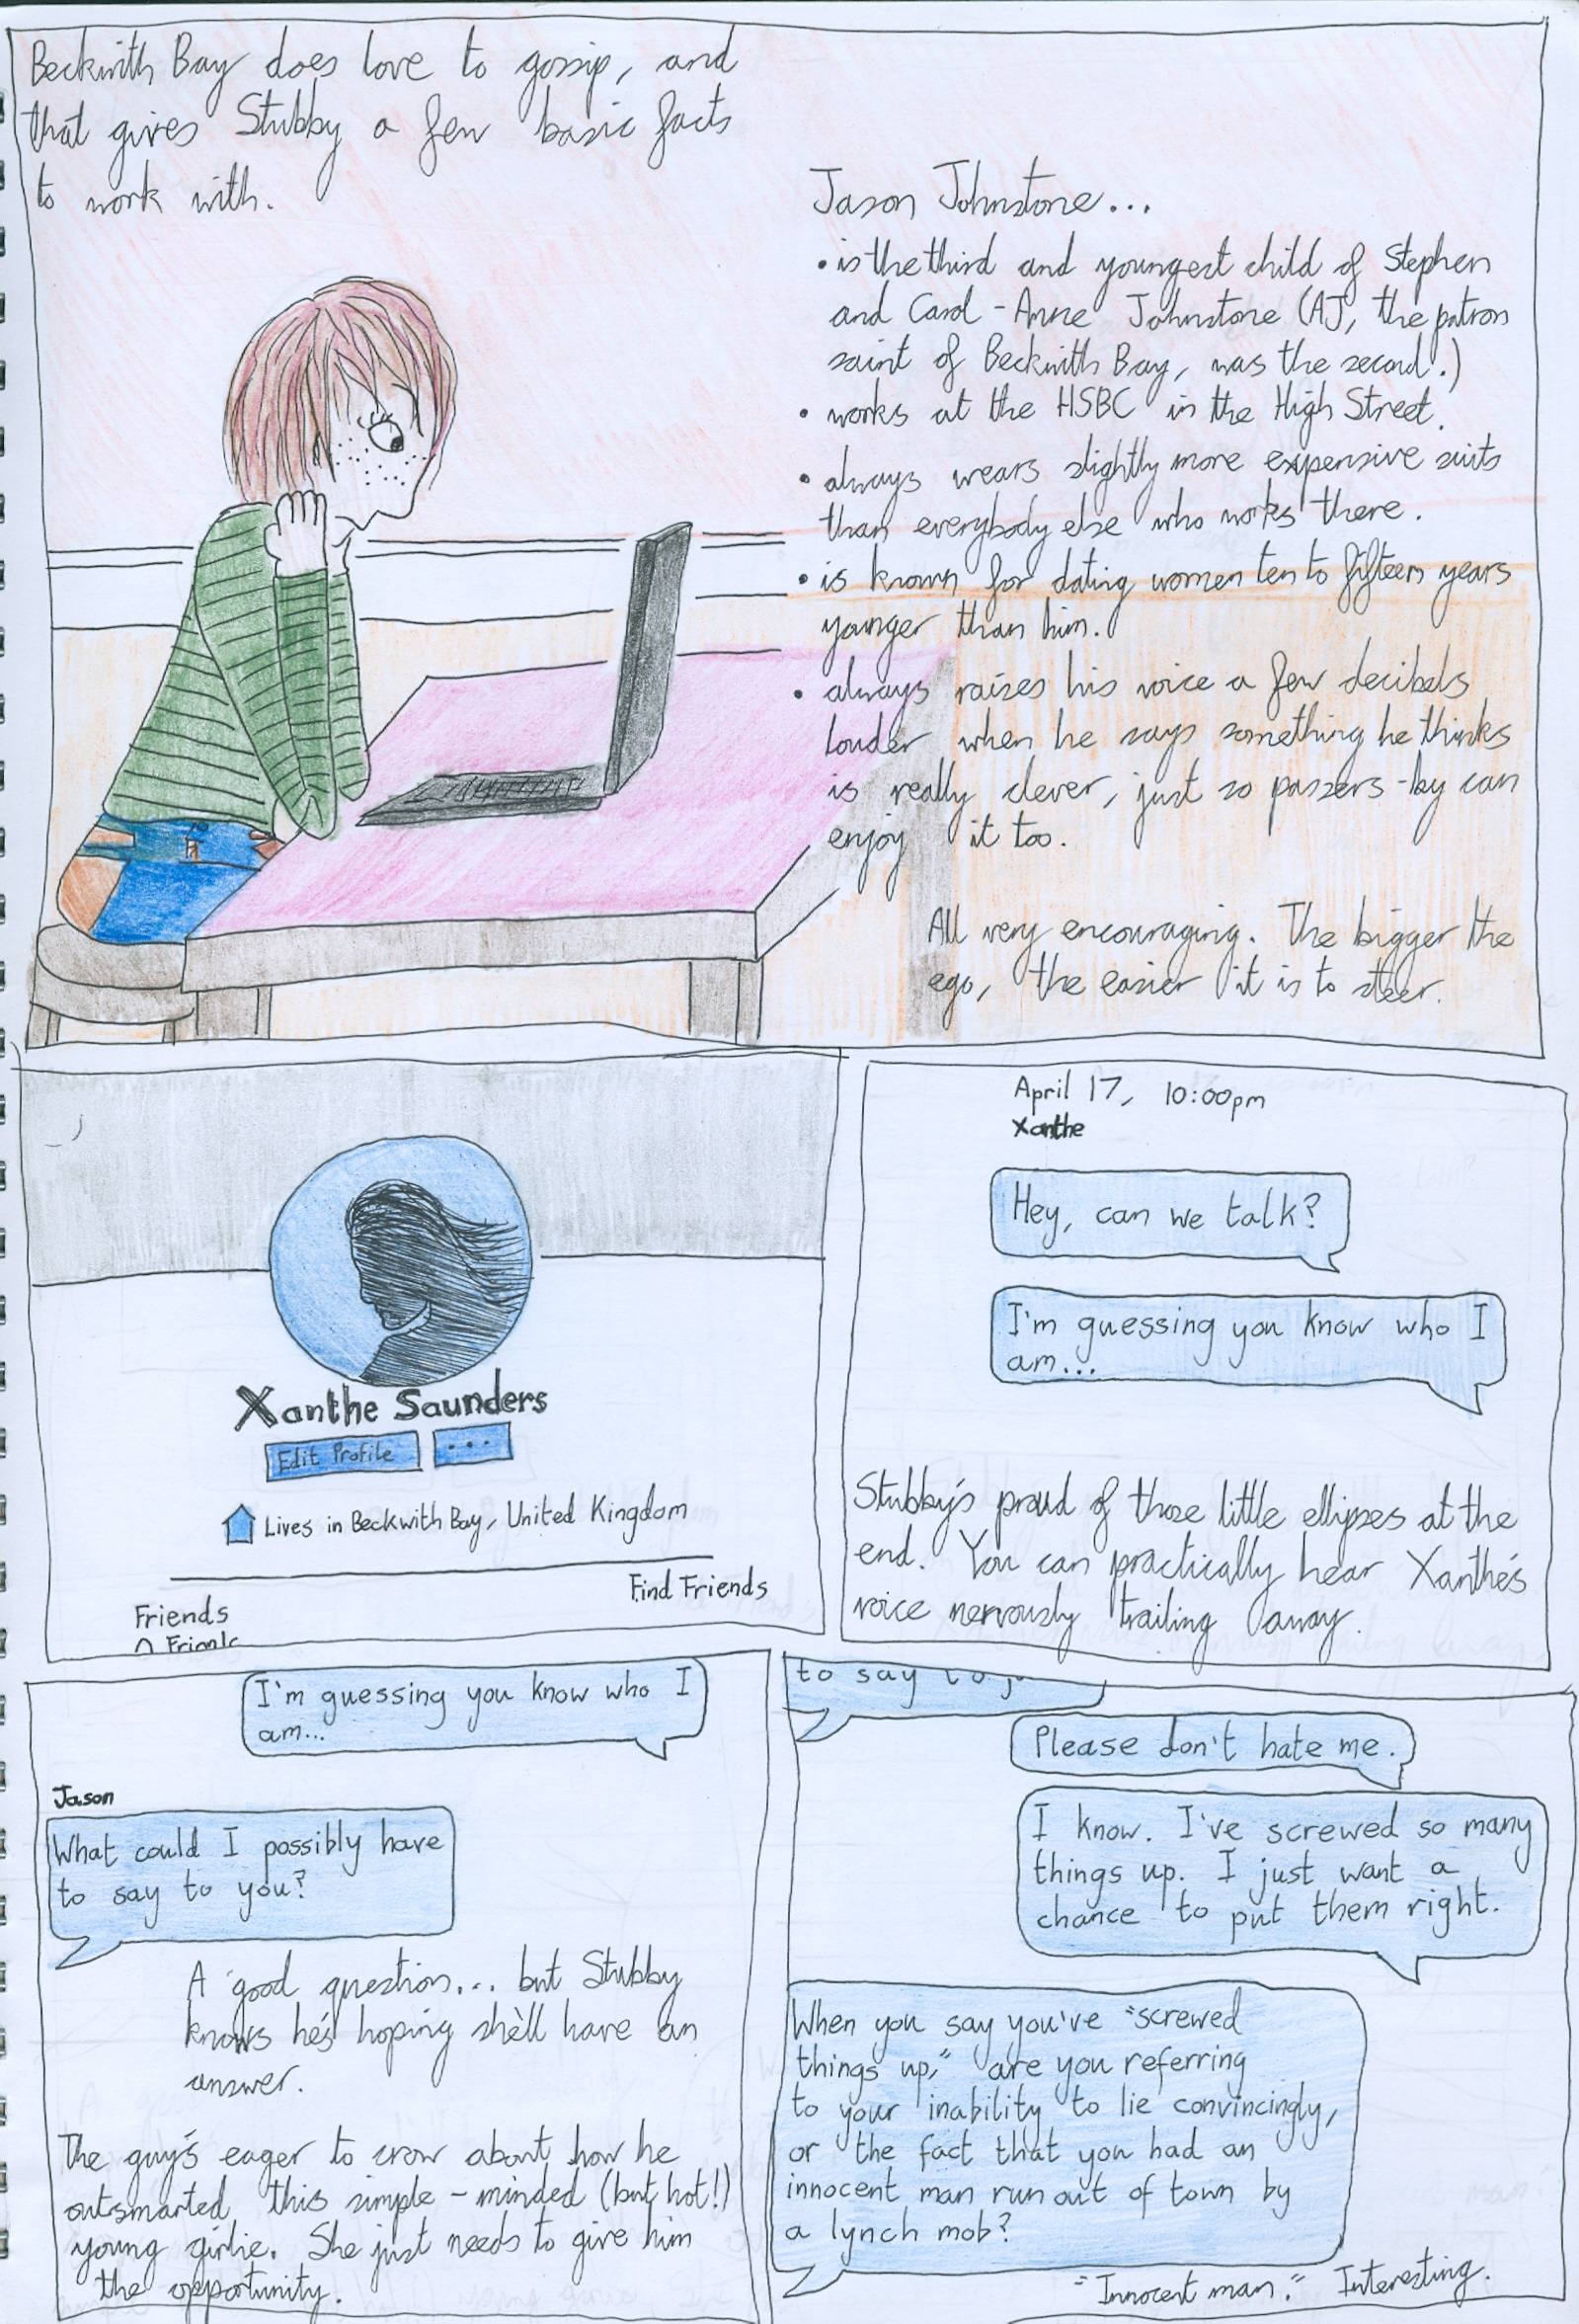 Beckwith Bay does love to gossip, and
that gives Stubby a few basic facts
to work with.
Jason Johnstone...
• is the third and youngest child of Stephen
and Carol-Anne Johnstone (AJ, the patron
saint of Beckwith Bay, was the second.)
• works at the HSBC in the High Street.
• always wears slightly more expensive suits
than everybody else who works there.
• is known for dating women ten to fifteen years
younger than him.
• always raises his voice a few decibels
louder when he says something he thinks
is really clever, just so passers-by can
enjoy it too.
All very encouraging. The bigger the
ego, the easier it is to steer.
Xanthe Saunders
Edit Profile ...
Lives in Beckwith Bay, United Kingdom
Find Friends
Friends
0 Friends
April 17, 10:00pm
Xanthe
Hey, can we talk?
I'm guessing you know who I
am...
Stubby's proud of those little ellipses at the
end. You can practically hear Xanthe's
voice nervously trailing away.
I'm guessing you know who I
am...
Jason
What could I possibly have
to say to you?
A good question... but Stubby
knows he's hoping she'll have an
answer.
The guy's eager to crow about how he
outsmarted this simple-minded (but hot!)
young girlie. She just needs to give him
the opportunity.
to say to you
Please don't hate me.
I know. I've screwed so many
things up. I just want a
chance to put them right.
When you say you've "screwed
things up," are you referring
to your inability to lie convincingly,
or the fact that you had an
innocent man run out of town by
a lynch mob?
"Innocent man." Interesting.